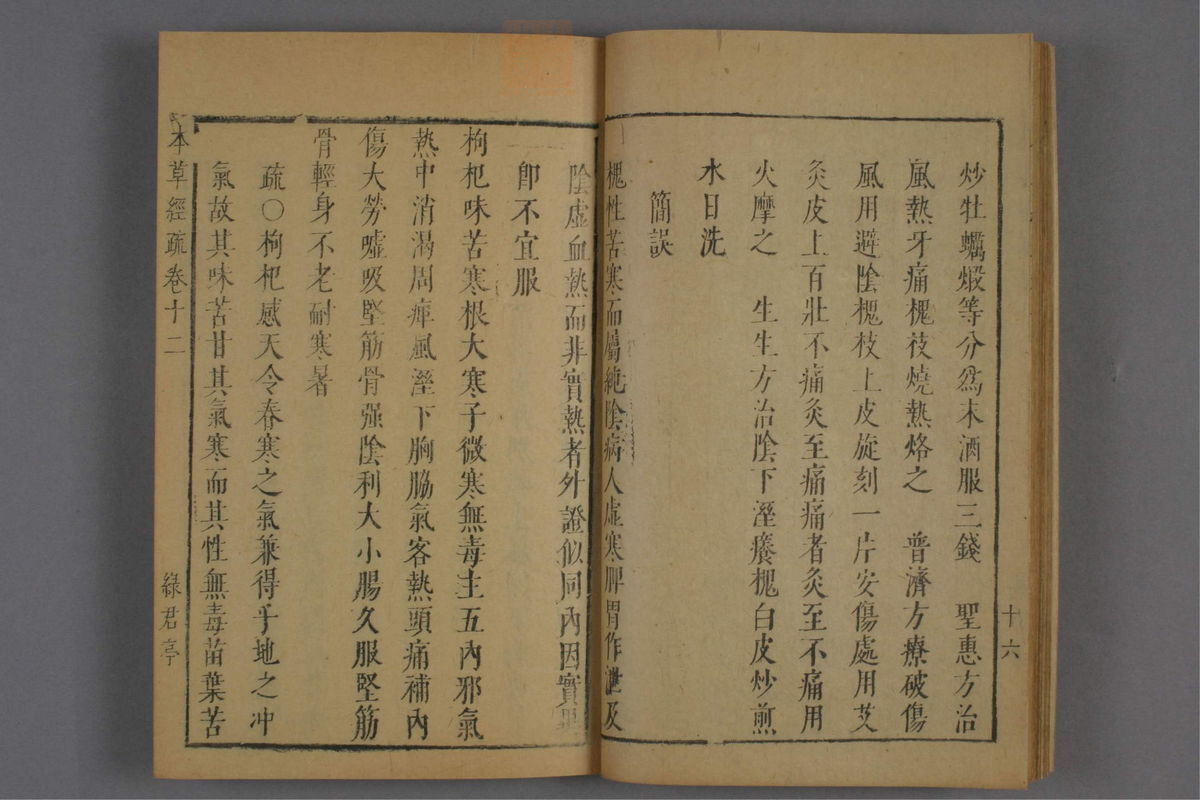 炒牡蠣煅等分爲末酒服三錢　聖惠方治
風熱牙痛槐枝燒熱烙之　普濟方療破傷
風用避陰槐枝上皮旋刻一片安傷處用艾
灸皮上百壯不痛灸至痛痛者灸至不痛用
火摩之　生生方治陰下溼癢槐白皮炒煎
水日洗
簡誤
槐性苦寒而屬純陰病人虛寒脾胃作泄及
十六
陰虛血熱而非實熱者外證似同內因實異
卽不宜服
枸杞味苦寒根大寒子微寒無毒主五內邪氣
熱中消渴周痺風溼下胸脇氣客熱頭痛補內
傷大勞噓吸堅筋骨强陰利大小腸久服堅筋
骨輕身不老耐寒暑
疏〇枸杞感天令春寒之氣兼得乎地之冲
氣故其味苦甘其氣寒而其性無毒苗葉苦
本草經疏卷十二
綠君亭